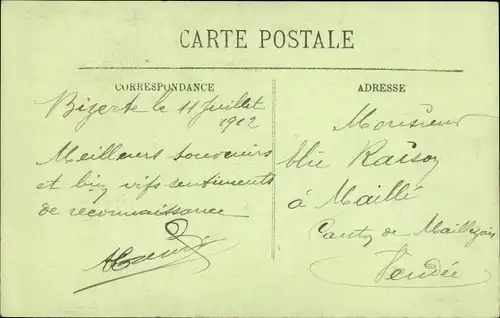 CARTE POSTALE
CORRESPONDANCE
Bizerte le 11 juillet
1912
Meilleurs souvenirs
et bien vifs sentiments
de reconnaissance
ADRESSE
Monsieur
Raison
à Maillé
Canton de Maillezais
Vendée